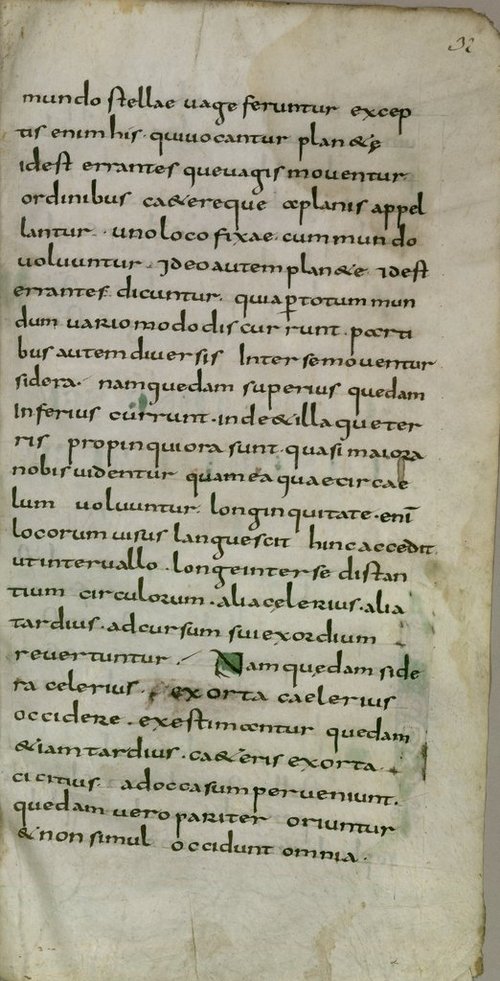 32
mundo stellae uage feruntur excep
tis enim his · qui uocantur plan&ę
idest errantes que uagis mouentur
ordinibus ca&ereque aplanis appel
lantur · uno loco fixae · cum mundo
uoluuntur · Ideo autem plan&e · idest
errantes dicuntur · quia ꝑ totum mun
dum uario modo discurrunt · parti
bus autem diuersis Inter se mouentur
sidera · nam quedam superius quedam
Inferius currunt · inde &illa que ter
ris propinquiora sunt · quasi maiora
nobis uidentur quam ea quae circa e
lum uoluuntur · longinquitate · enī
locorum uisus languescit hinc accedit
ut interuallo · longe inter se distan
tium circulorum · alia cęlerius · alia
tardius · ad cursum sui exordium
reuertuntur · Nam quędam side
ra celerius · exorta caelerius
occidere · exestimantur quedam
&iam tardius · ca&eris exorta
cicitius adoccasum perueniunt ·
quedam uero pariter oriuntur
& non simul occidunt omnia ·